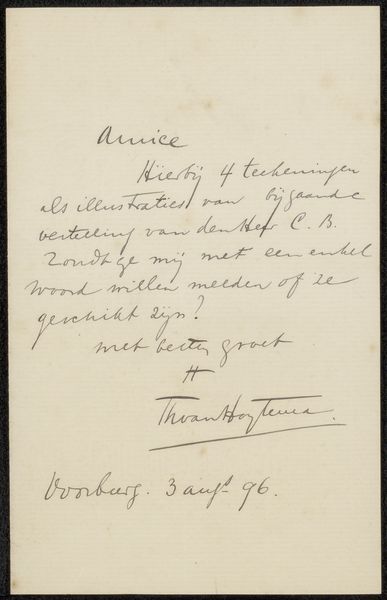 Amice
Hierbij 4 teekeningen
als illustraties van bijgaande
vertelling van den Heer C. B.
Zoudt ge mij met een enkel
woord willen melden of ze
geschikt zijn?
met besten groet
tt
ThvanHoytema.
Voorburg. 3 augs 96.